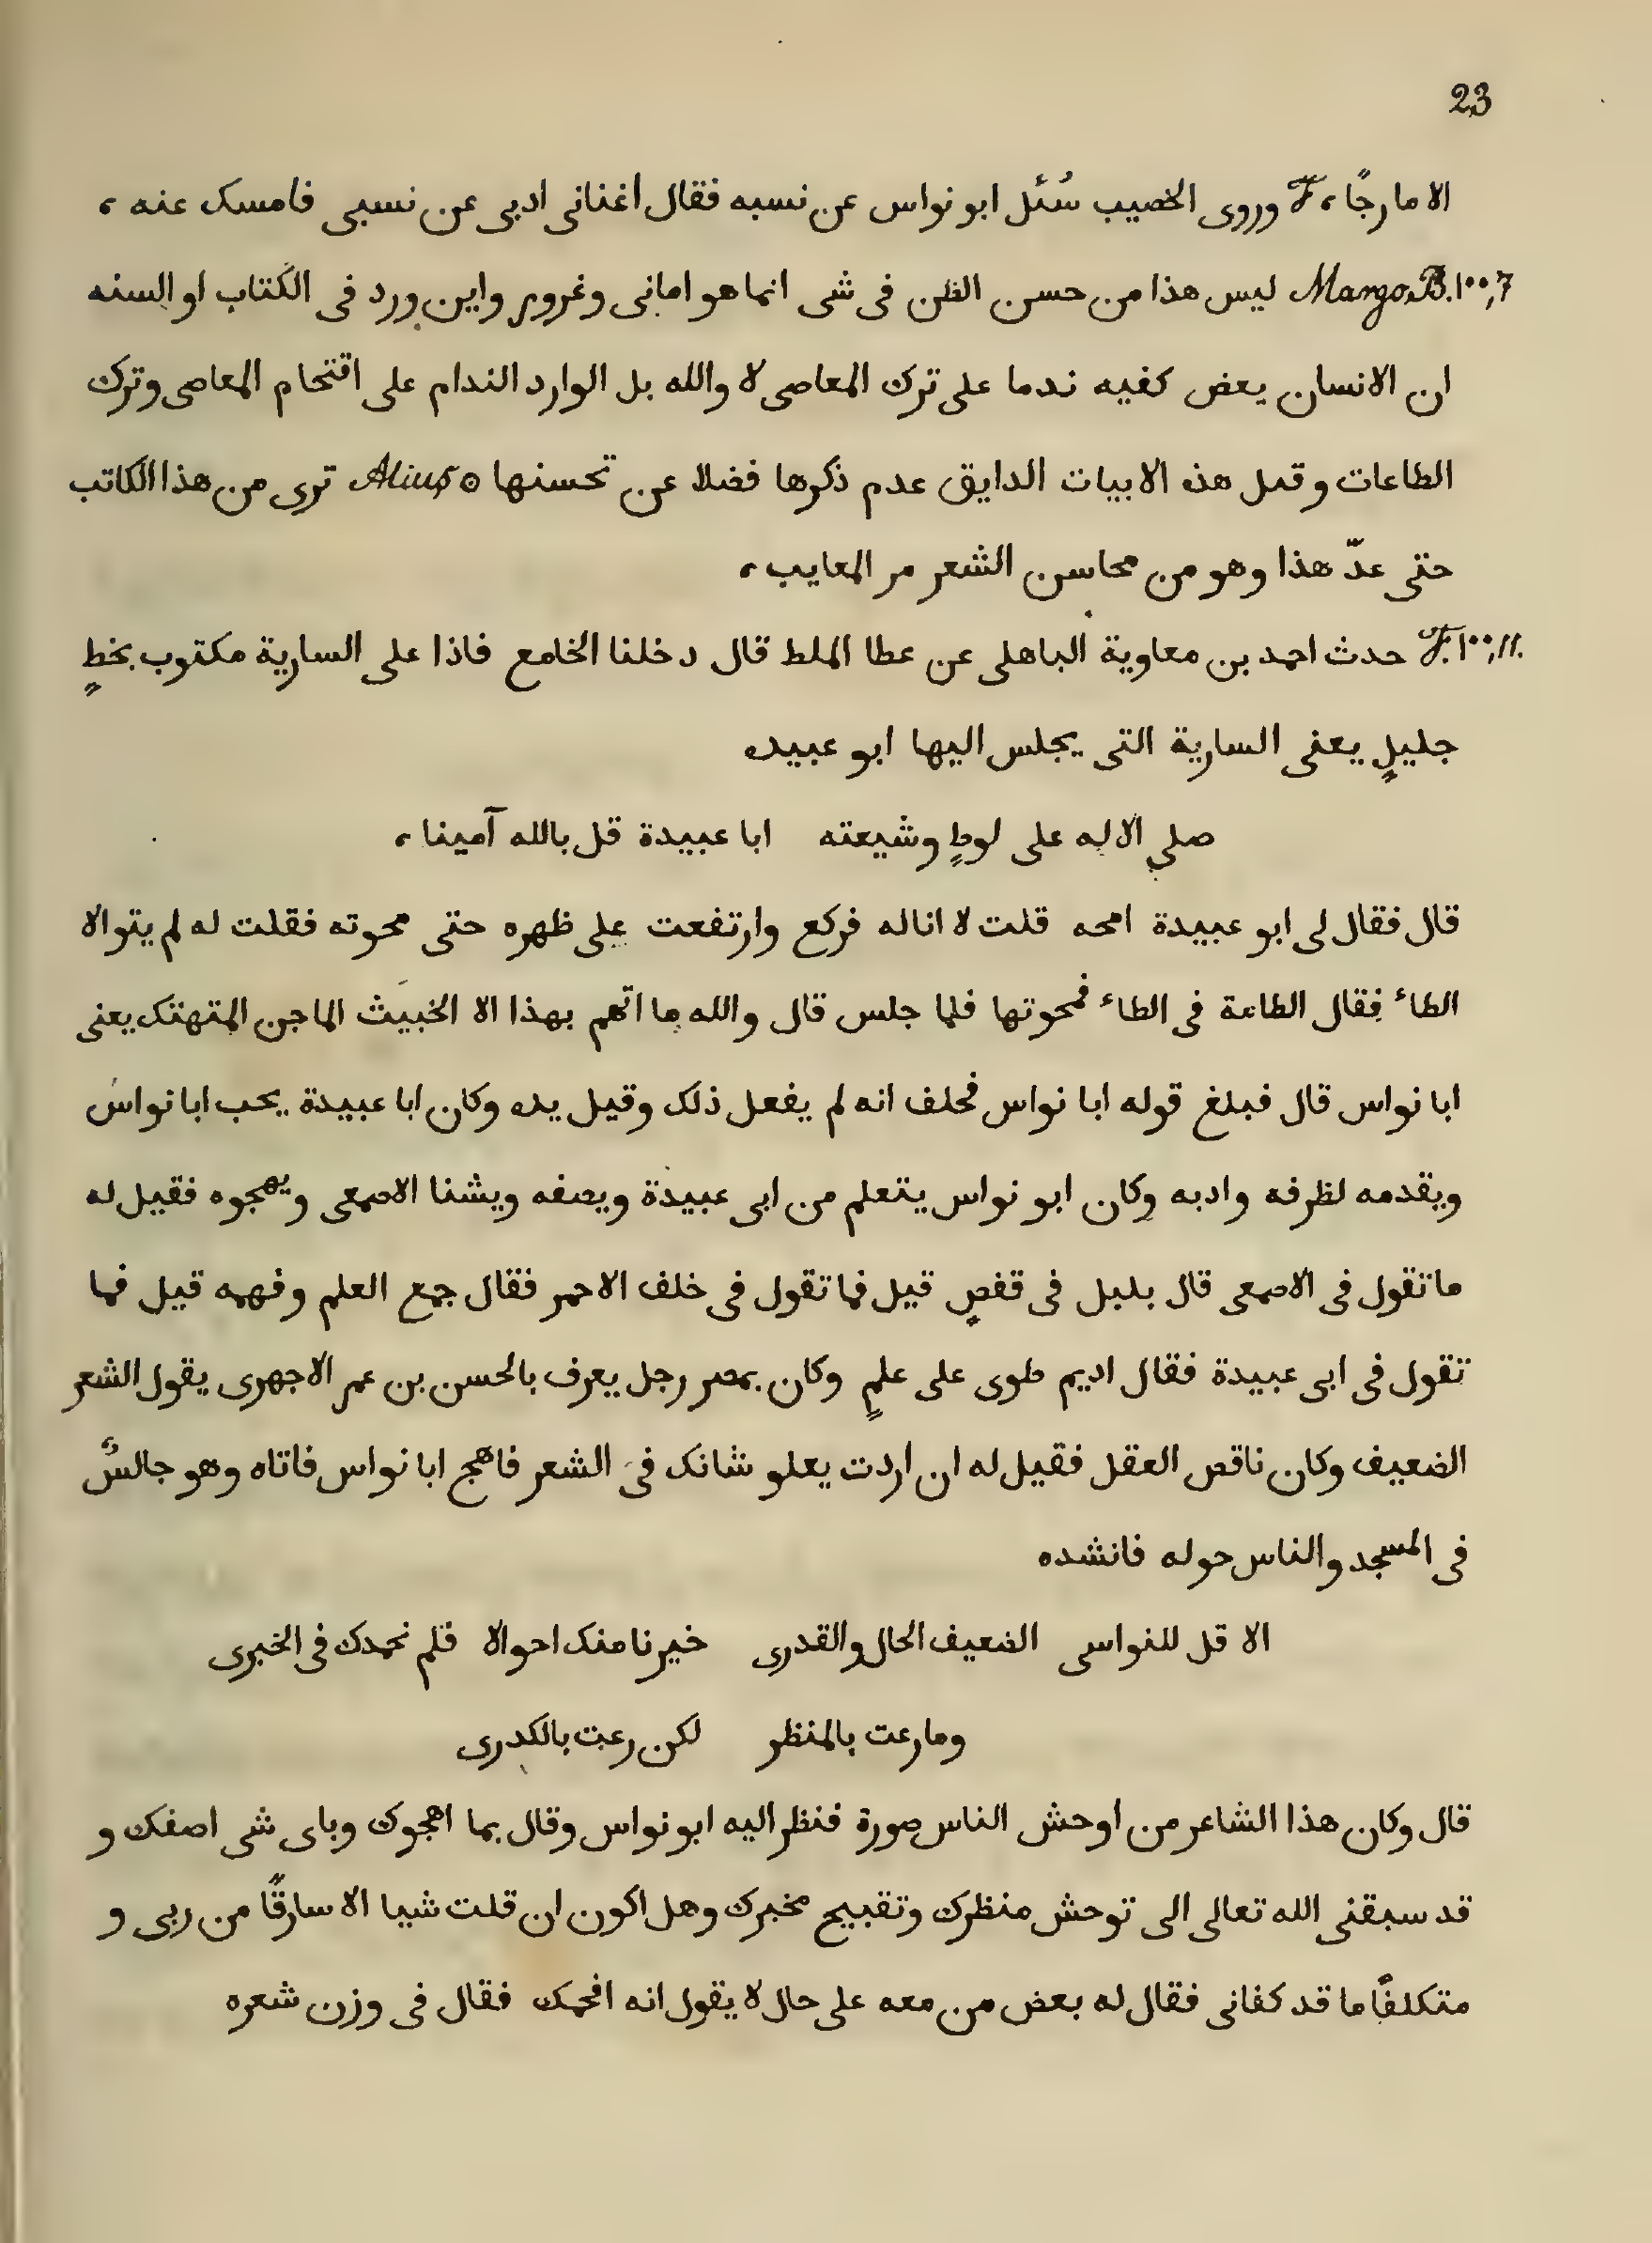 23
الا مارجًا، F وروى الخصيب سُئل ابو نواس عن نسبه فقال اغنانى ادبى عن نسبى فامسك عنه ،
Margo.B.١٠٠,7 ليس هذا من حسن الظن فى شى انما هو امانى وغرور واين ورد فى الكتاب او السنه
ان الانسان يعض كفيه ندما على ترك المعاصى لا والله بل الوارد الندام على اقتحام المعاصى وترك
الطاعات وقمل هذه الابيات الدايق عدم ذكرها فضلا عن تحسنها ٥ Alius ترى من هذا الكاتب
حتى عدّ هذا وهو من محاسن الشعر مر المعايب ،
F.١٠٠,11. حدث احمد بن معاوية الباهلى عن عطا الملط قال دخلنا الخامع فاذا على السارية مكتوب بخطٍ
جليلٍ يعنى السارية التى يجلس اليها ابو عبيده
صلى الاله على لوطٍ وشيعته ابا عبيدة قل بالله آمينا ،
قال فقال لى ابو عبيدة امحه قلت لا اناله فركع وارتفعت على ظهره حتى محوته فقلت له لم يتوالا
الطاء فقال الطامة فى الطاء فمحوتها فلما جلس قال والله ما اتهم بهذا الا الخبيث الماجن المتهتك يعنى
ابا نواس قال فبلغ قوله ابا نواس فحلف انه لم يفعل ذلك وقيل يده وكان ابا عبيدة يحب ابا نواس
ويقدمه لظرفه وادبه وكان ابو نواس يتعلم من ابى عبيدة ويصفه ويشنا الاصمعى ويهجوه فقيل له
ما تقول فى الاصمعى قال بلبل فى قفصٍ قيل فما تقول فى خلف الاحمر فقال جمع العلم وفهمه قيل فما
تقول فى ابى عبيدة فقال اديم طوى على علمٍ وكان بمصر رجل يعرف بالحسن بن عمر الاجهرى يقول الشعر
الضعيف وكان ناقص العقل فقيل له ان اردت يعلو شانك فى الشعر فاهج ابا نواس فاتاه وهو جالسٌ
فى المسجد والناس حوله فانشده
الا قل للنواسى الضعيف الحال والقدرى خبرنا منك احوالا فلم نحمدك فى الخبرى
وما رعت بالمنظر لكن رعبت بالكدرى
قال وكان هذا الشاعر من اوحش الناس صورة فنظر اليه ابو نواس وقال بما اهجوك وباى شى اصفك و
قد سبقنى الله تعالى الى توحش منظرك وتقبيح مخبرك وهل اكون ان قلت شيا الا سارقًا من ربى و
متكلفًا ما قد كفانى فقال له بعض من معه على حال لا يقول انه افحمك فقال فى وزن شعره